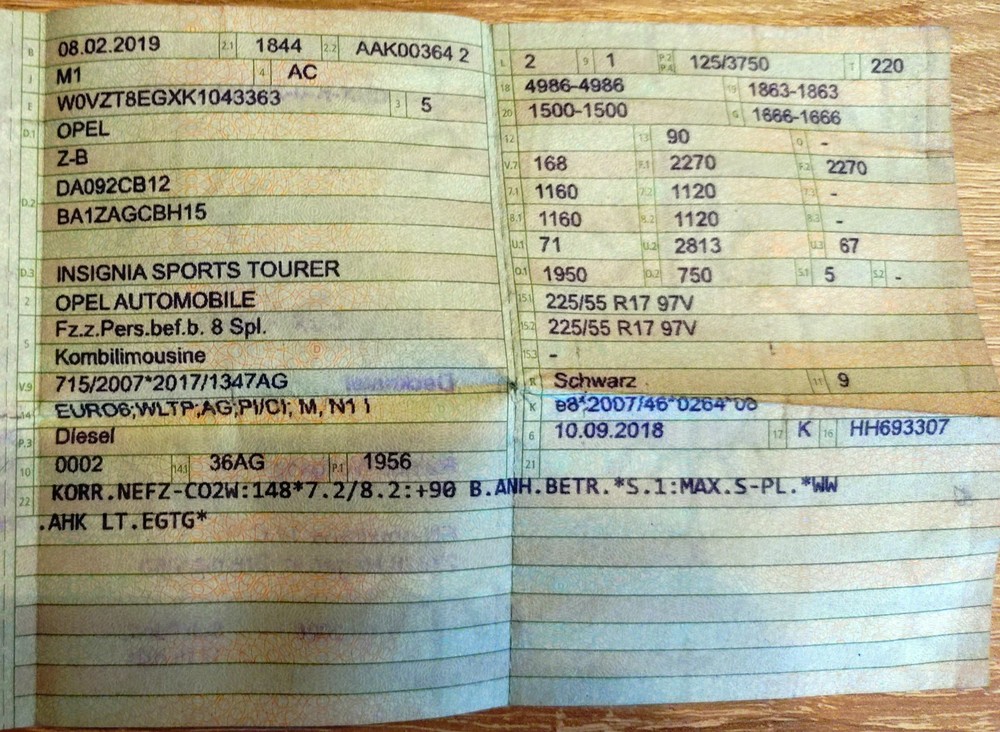 B 08.02.2019 2.1 1844 2.2 AAK00364 2
J M1 4 AC
E W0VZT8EGXK1043363 3 5
D.1 OPEL
Z-B
D.2 DA092CB12
BA1ZAGCBH15
D.3 INSIGNIA SPORTS TOURER
2 OPEL AUTOMOBILE
Fz.z.Pers.bef.b. 8 Spl.
5 Kombilimousine
V.9 715/2007*2017/1347AG
14 EURO6;WLTP;AG;PI/CI; M, N1 I
P.3 Diesel
10 0002 14.1 36AG P.1 1956
L 2 9 1 P.2 P.4 125/3750 T 220
18 4986-4986 19 1863-1863
20 1500-1500 G 1666-1666
12 13 90 Q -
V.7 168 F.1 2270 F.2 2270
7.1 1160 7.2 1120 7.3 -
8.1 1160 8.2 1120 8.3 -
U.1 71 U.2 2813 U.3 67
O.1 1950 O.2 750 S.1 5 S.2 -
15.1 225/55 R17 97V
15.2 225/55 R17 97V
15.3 -
R Schwarz 11 9
K e8*2007/46*0264*06
6 10.09.2018 17 K 16 HH693307
21
22 KORR.NEFZ-CO2W:148*7.2/8.2:+90 B.ANH.BETR.*S.1:MAX.S-PL.*WW
.AHK LT.EGTG*